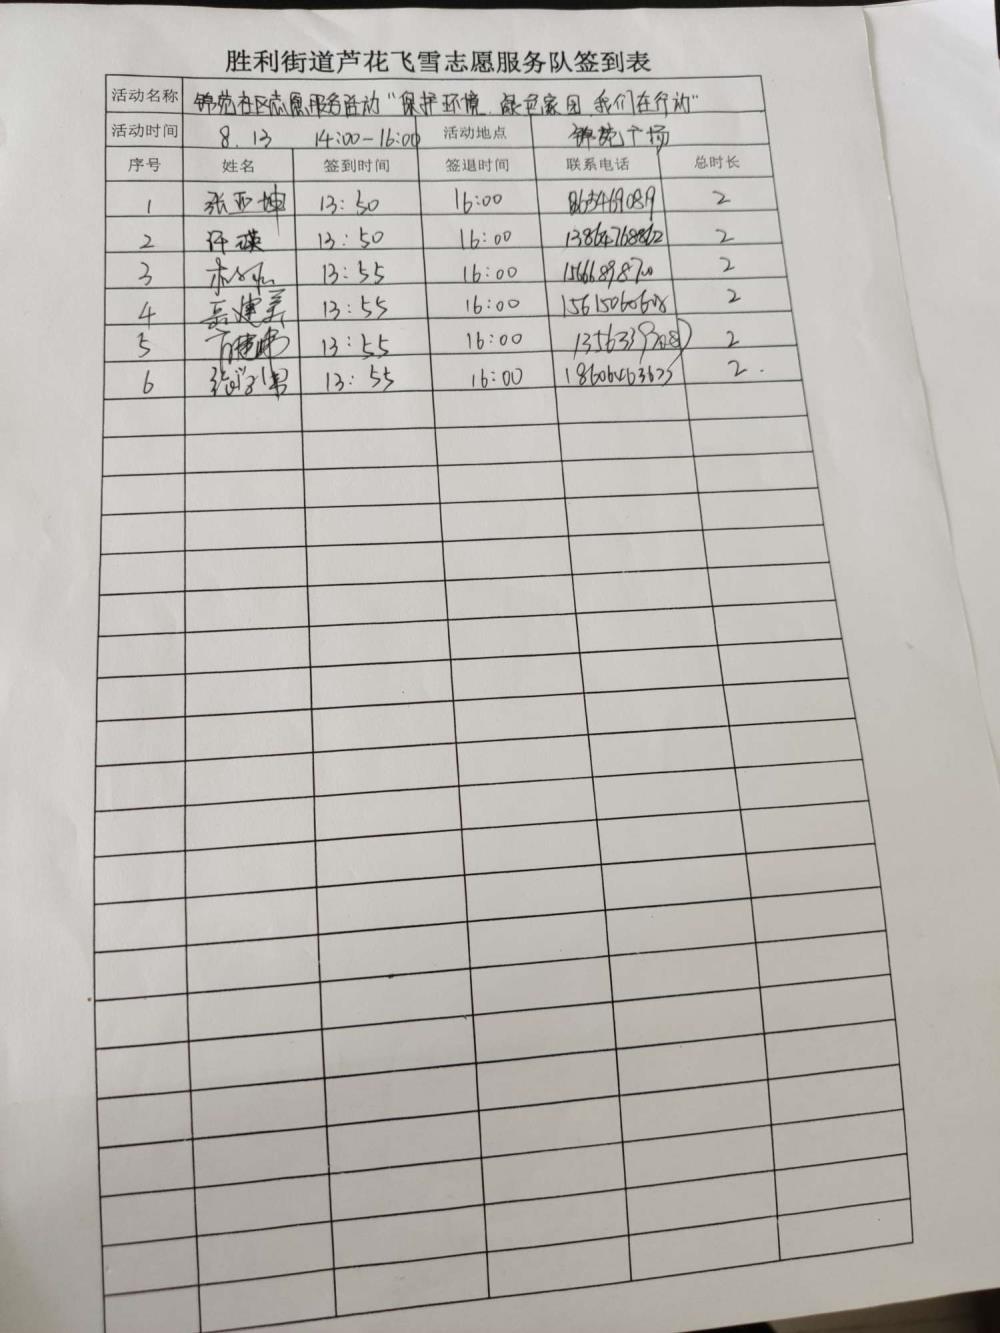 胜利街道芦花飞雪志愿服务队签到表
活动名称 锦苑社区志愿服务活动“保护环境、绿色家园、我们在行动”
活动时间 8.13 14:00-16:00 活动地点 锦苑广场
序号 姓名 签到时间 签退时间 联系电话 总时长
1 张亚坤 13:50 16:00 2
2 许瑛 13:50 16:00 13864768862 2
3 13:55 16:00 2
4 岳建美 13:55 16:00 2
5 13:55 16:00 2
6 13:55 16:00 2.